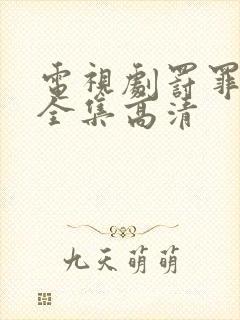 電視劇罰罪
全集高清
九天萌萌